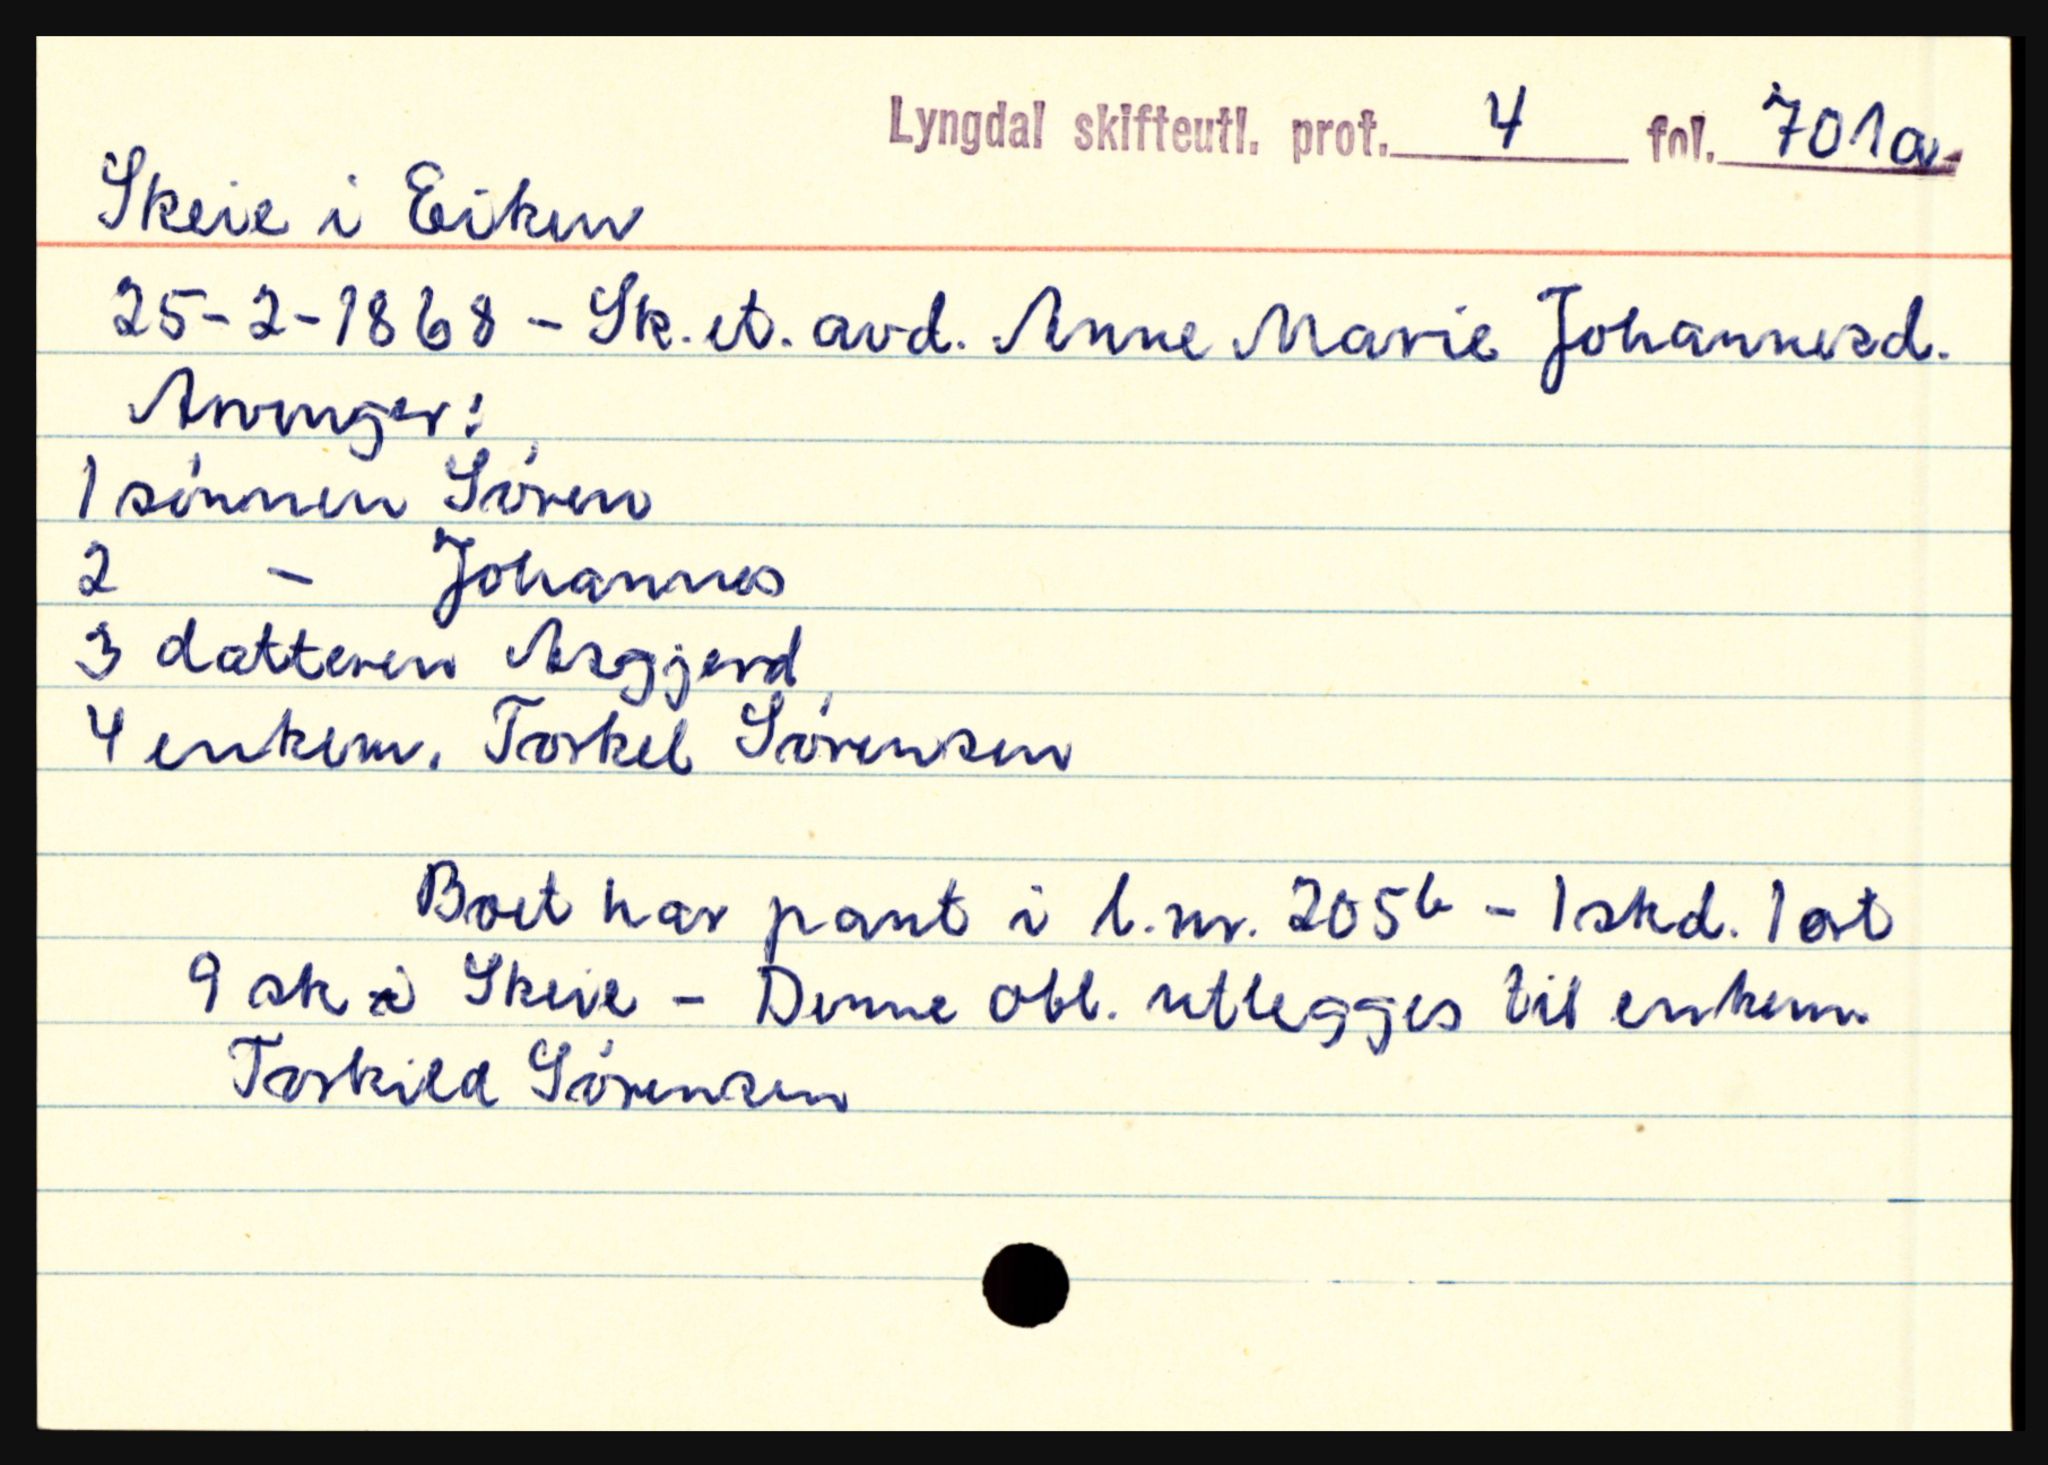 Lyngdal skifteutl. prot. 4 fol. 701a
Skeie i Eiken
25-2-1868 - Sk. et. avd. Anne Marie Johannesd.
Arvinger:
1 sønnen Søren
2 - Johannes
3 datteren Asgjerd
4 enkem. Torkel Sørensen
Boet har pant i l.nr. 205b - 1 skd. 1 ort
9 sk i Skeie - Denne obl. utlegges til enkem.
Torkild Sørensen